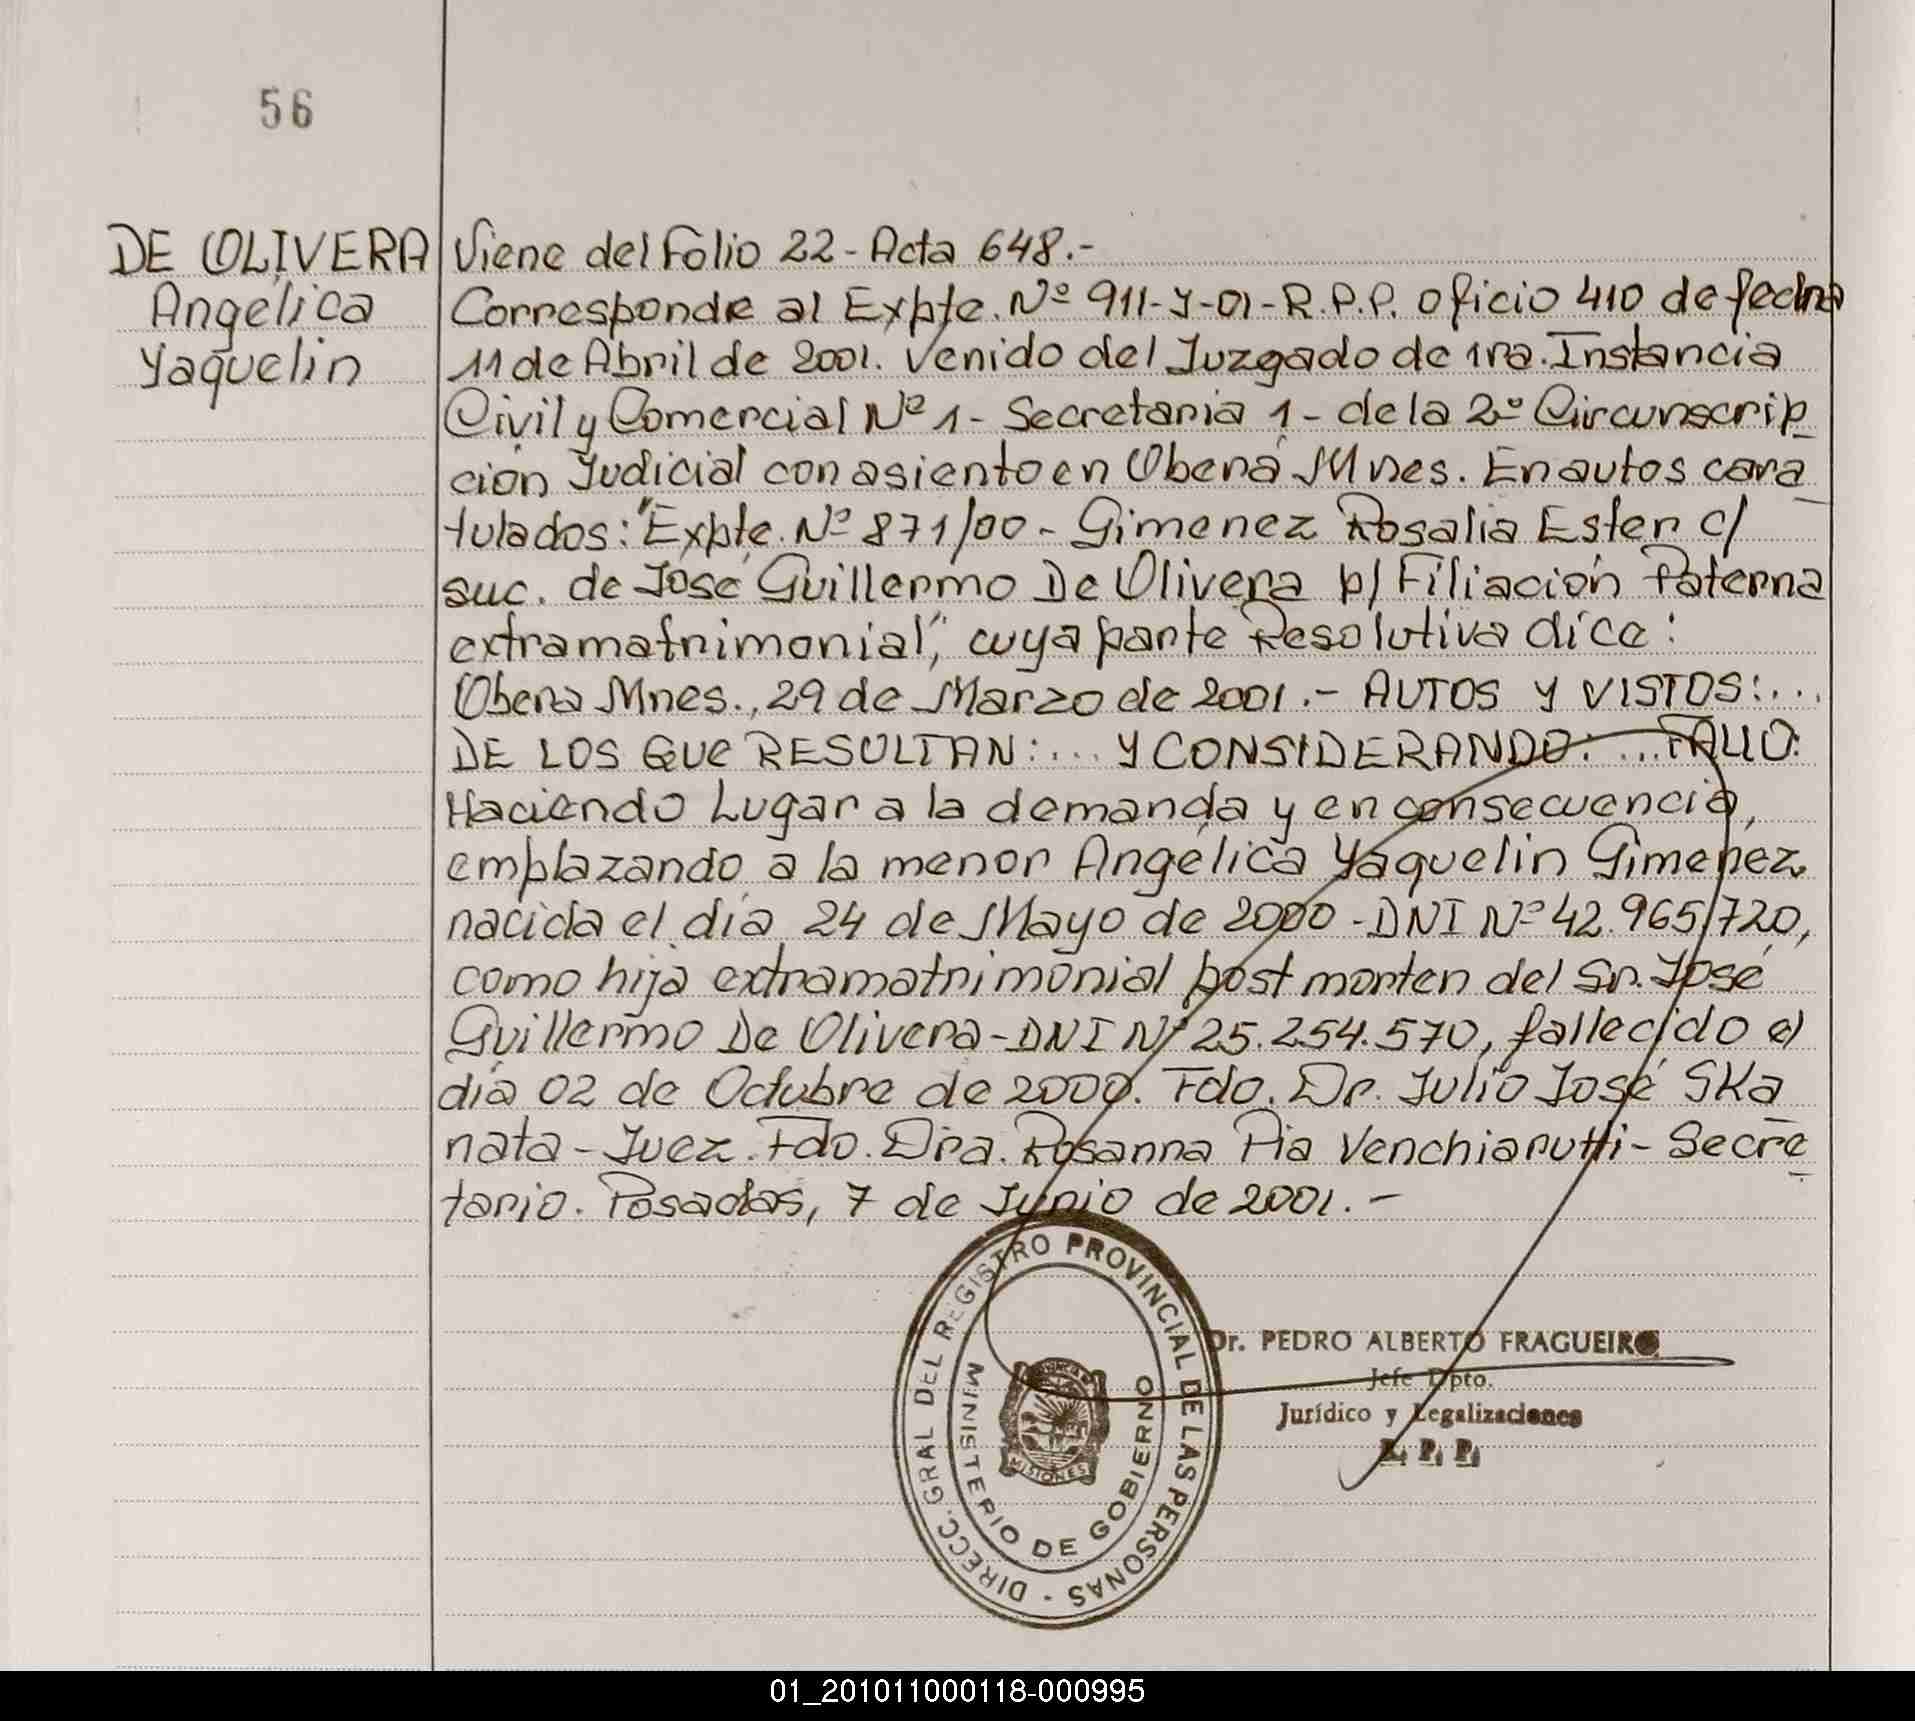 56
DE OLIVERA
Angélica
Yaquelin
Viene del Folio 22 - Acta 648.-
Corresponde al Expte. Nº 911-Y-01-R.P.P. oficio 410 de fecha
11 de Abril de 2001. Venido del Juzgado de 1ra. Instancia
Civil y Comercial Nº 1 - Secretaria 1 - de la 2º Circunscrip_
ción Judicial con asiento en Oberá Mnes. En autos cara_
tulados: "Expte. Nº 871/00 - Gimenez Rosalia Ester c/
suc. de José Guillermo De Olivera p/ Filiación Paterna
extramatrimonial", cuya parte Resolutiva dice:
Obera Mnes., 29 de Marzo de 2001.- AUTOS Y VISTOS:...
DE LOS QUE RESULTAN:... Y CONSIDERANDO:...FALLO:
Haciendo Lugar a la demanda y en consecuencia,
emplazando a la menor Angélica Yaquelin Gimenez
nacida el día 24 de Mayo de 2000 - DNI Nº 42.965.720,
como hija extramatrimonial post morten del Sr. José
Guillermo De Olivera - DNI Nº 25.254.570, fallecido el
día 02 de Octubre de 2000. Fdo. Dr. Julio José SKa_
nata - Juez. Fdo. Dra. Rosanna Pia Venchiarutti - Secre_
tario. Posadas, 7 de Junio de 2001.-
DIRECC. GRAL DEL REGISTRO PROVINCIAL DE LAS PERSONAS -
MINISTERIO DE GOBIERNO
MISIONES
Dr. PEDRO ALBERTO FRAGUEIRO
Jefe Dpto.
Jurídico y Legalizaciones
R. P. P.
01_201011000118-000995